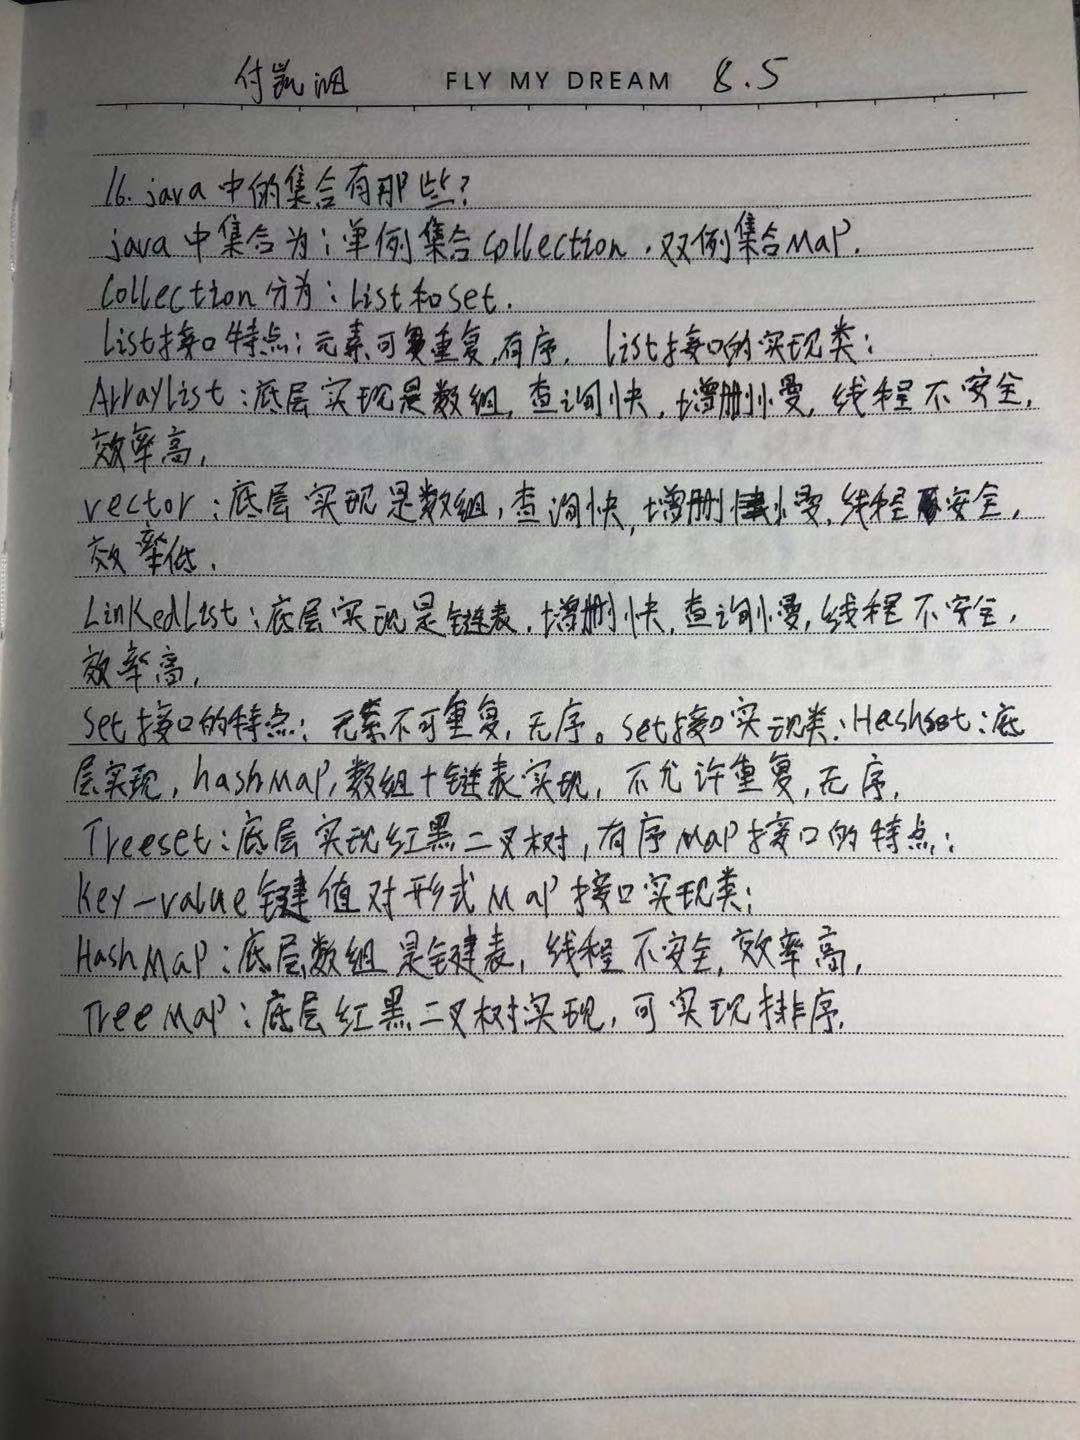 付凯 FLY MY DREAM 8.5
16. java中的集合有那些?
java中集合为:单例集合Collection,双例集合Map.
Collection分为:list和set.
list接口特点:元素可重复,有序. list接口的实现类:
ArrayList:底层实现是数组,查询快,增删慢,线程不安全,
效率高,
vector:底层实现是数组,查询快,增删慢,线程安全,
效率低.
LinkedList:底层实现是链表,增删快,查询慢,线程不安全,
效率高,
set接口的特点:元素不可重复,无序。set接口实现类:Hashset:底
层实现,hashMap,数组+链表实现,不允许重复,无序,
Treeset:底层实现红黑二叉树,有序Map接口的特点:
key-value键值对形式Map接口实现类:
HashMap:底层数组是链表,线程不安全,效率高,
TreeMap:底层红黑二叉树实现,可实现排序.